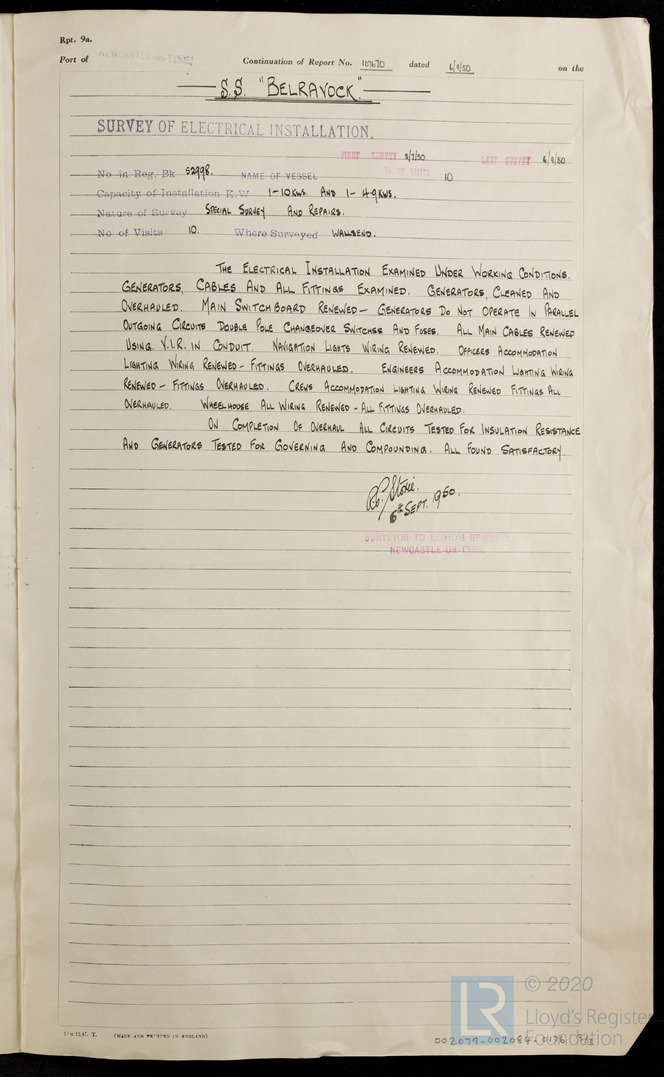 Rpt. 9a.
Port of NEWCASTLE-ON-TYNE Continuation of Report No. 107670 dated 6/9/50 on the
S.S. "BELRAVOCK."
SURVEY OF ELECTRICAL INSTALLATION.
FIRST SURVEY 5/7/50 LAST SURVEY 6/9/50
No in Reg. Bk 52998. NAME OF VESSEL 10
Capacity of Installation K.W 1-10KWS AND 1-4.9KWS.
Nature of Survey SPECIAL SURVEY AND REPAIRS.
No of Visits 10. Where Surveyed WALLSEND.
THE ELECTRICAL INSTALLATION EXAMINED UNDER WORKING CONDITIONS.
GENERATORS, CABLES AND ALL FITTINGS EXAMINED. GENERATORS, CLEANED AND
OVERHAULED. MAIN SWITCHBOARD RENEWED - GENERATORS DO NOT OPERATE IN PARALLEL
OUTGOING CIRCUITS DOUBLE POLE CHANGEOVER SWITCHES AND FUSES. ALL MAIN CABLES RENEWED
USING V.I.R. IN CONDUIT. NAVIGATION LIGHTS WIRING RENEWED. OFFICERS ACCOMMODATION
LIGHTING WIRING RENEWED - FITTINGS OVERHAULED. ENGINEERS ACCOMMODATION LIGHTING WIRING
RENEWED - FITTINGS OVERHAULED. CREWS ACCOMMODATION LIGHTING WIRING RENEWED FITTINGS ALL
OVERHAULED. WHEELHOUSE ALL WIRING RENEWED - ALL FITTINGS OVERHAULED.
ON COMPLETION OF OVERHAUL ALL CIRCUITS TESTED FOR INSULATION RESISTANCE
AND GENERATORS TESTED FOR GOVERNING AND COMPOUNDING. ALL FOUND SATISFACTORY.
6th SEPT. 1950.
SURVEYOR TO LLOYD'S REGISTER
NEWCASTLE-ON-TYNE.
(MADE AND PRINTED IN ENGLAND)
LR © 2020
Lloyd's Register
Foundation
002079-002084-0176 3/3